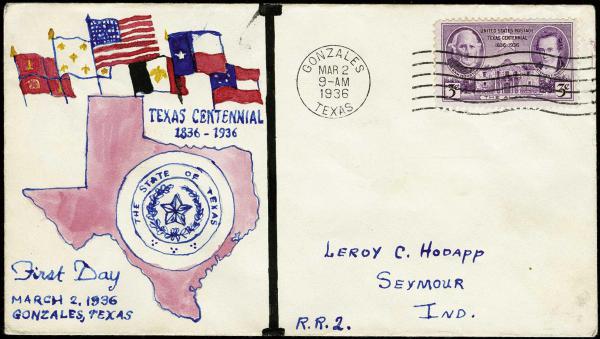 TEXAS CENTENNIAL
1836 - 1936
THE STATE OF TEXAS
First Day
MARCH 2, 1936
GONZALES, TEXAS
GONZALES
MAR 2
9-AM
1936
TEXAS
UNITED STATES POSTAGE
TEXAS CENTENNIAL
1836-1936
3¢ 3¢
LEROY C. HODAPP
SEYMOUR
IND.
R.R.2.